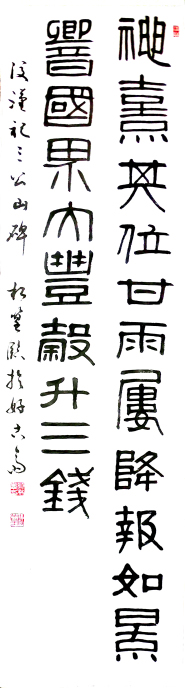 神熹其位甘雨屢降報如景
響國界大豐穀斗三錢
後漢祀三公山碑 臨於好古齋